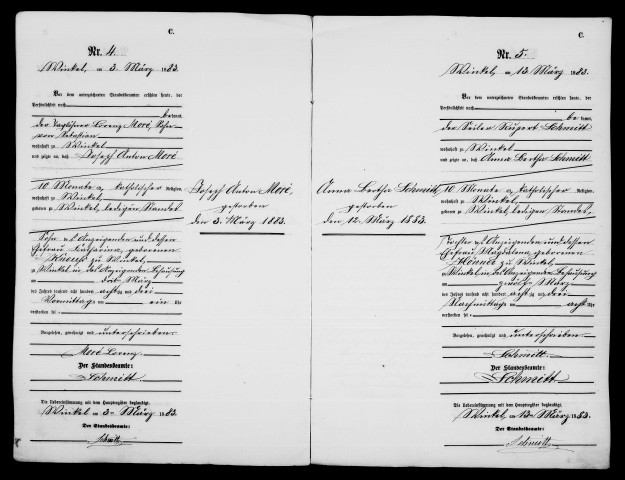 C.
Nr. 4.
Winkel, am 3. März 1883.
Vor dem unterzeichneten Standesbeamten erschien heute, der
Persönlichkeit nach
be kannt,
der Taglöhner Lorenz Moré, Sohn
von Sebastian
wohnhaft zu Winkel
und zeigte an, daß Joseph Anton Moré
10 Monate a, katholischer Religion,
wohnhaft zu Winkel,
geboren zu Winkel, ledigen Standes
Sohn d. Anzeigenden und dessen
Ehefrau Katharina, geborenen
zu Winkel,
zu Winkel in des Anzeigenden Behausung
am dritt März
des Jahres tausend acht hundert achtzig und drei
Vormittags um ein Uhr
verstorben sei.
Vorgelesen, genehmigt und unterschrieben
Moré Lorenz
Der Standesbeamte:
Schmitt
Die Uebereinstimmung mit dem Hauptregister beglaubigt.
Winkel, am 3. März 1883.
Der Standesbeamte:
Schmitt
Joseph Anton Moré,
gestorben
den 3. März 1883.
C.
Nr. 5.
Winkel, am 13. März 1883.
Vor dem unterzeichneten Standesbeamten erschien heute, der
Persönlichkeit nach
be kannt,
der Seiler Rupert Schmitt
wohnhaft zu Winkel
und zeigte an, daß Anna Bertha Schmitt
10 Monate a, katholischer Religion,
wohnhaft zu Winkel,
geboren zu Winkel, ledigen Standes,
Tochter d. Anzeigenden und dessen
Ehefrau Magdalena, geborenen
zu Winkel,
zu Winkel in des Anzeigenden Behausung
am zwölf März
des Jahres tausend acht hundert achtzig und drei
Nachmittags um acht Uhr
verstorben sei.
Vorgelesen, genehmigt und unterschrieben
Schmitt
Der Standesbeamte:
Schmitt
Die Uebereinstimmung mit dem Hauptregister beglaubigt.
Winkel, am 13. März 1883.
Der Standesbeamte:
Schmitt
Anna Bertha Schmitt,
gestorben
den 12. März 1883.